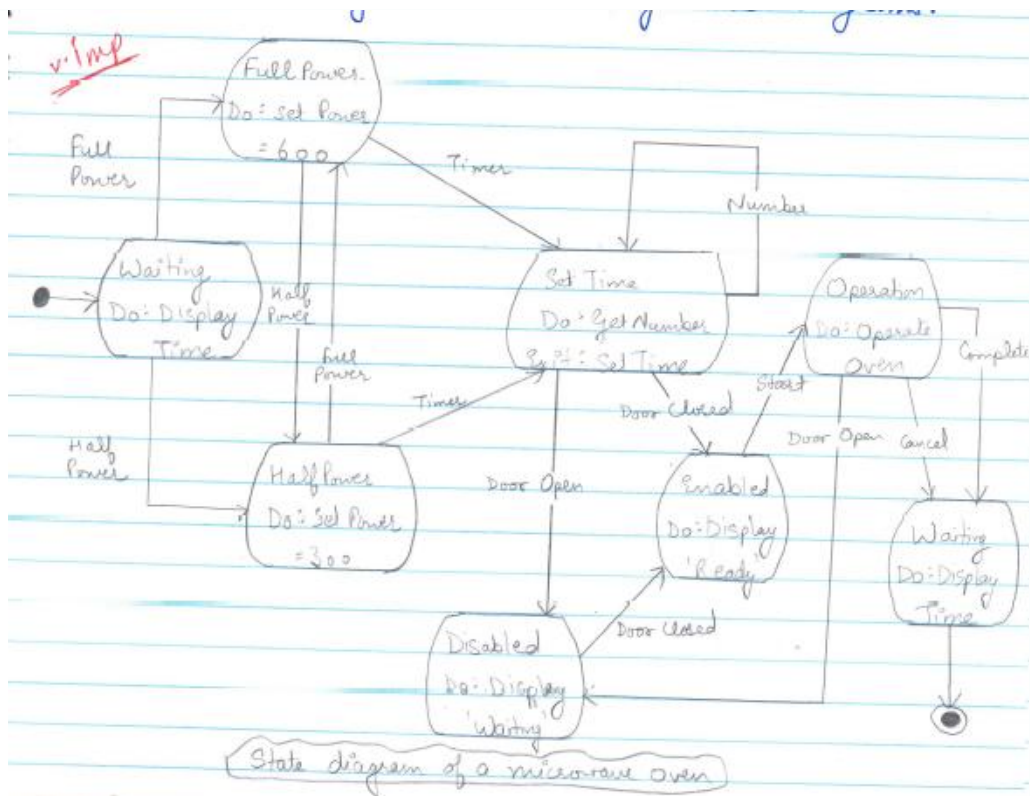 v.Imp
Full Power
Do: set Power
= 600
Full
Power
Timer
Number
Waiting
Do: Display
Time
Half
Power
Full
Power
Set Time
Do: Get Number
Exit: Set Time
Operation
Do: Operate
Oven
Complete
Timer
Door Closed
Start
Half
Power
Half Power
Do: Set Power
=300
Door Open
Enabled
Do: Display
'Ready'
Door Open
Cancel
Waiting
Do: Display
Time
Disabled
Do: Display
'Waiting'
Door Closed
State diagram of a microwave oven